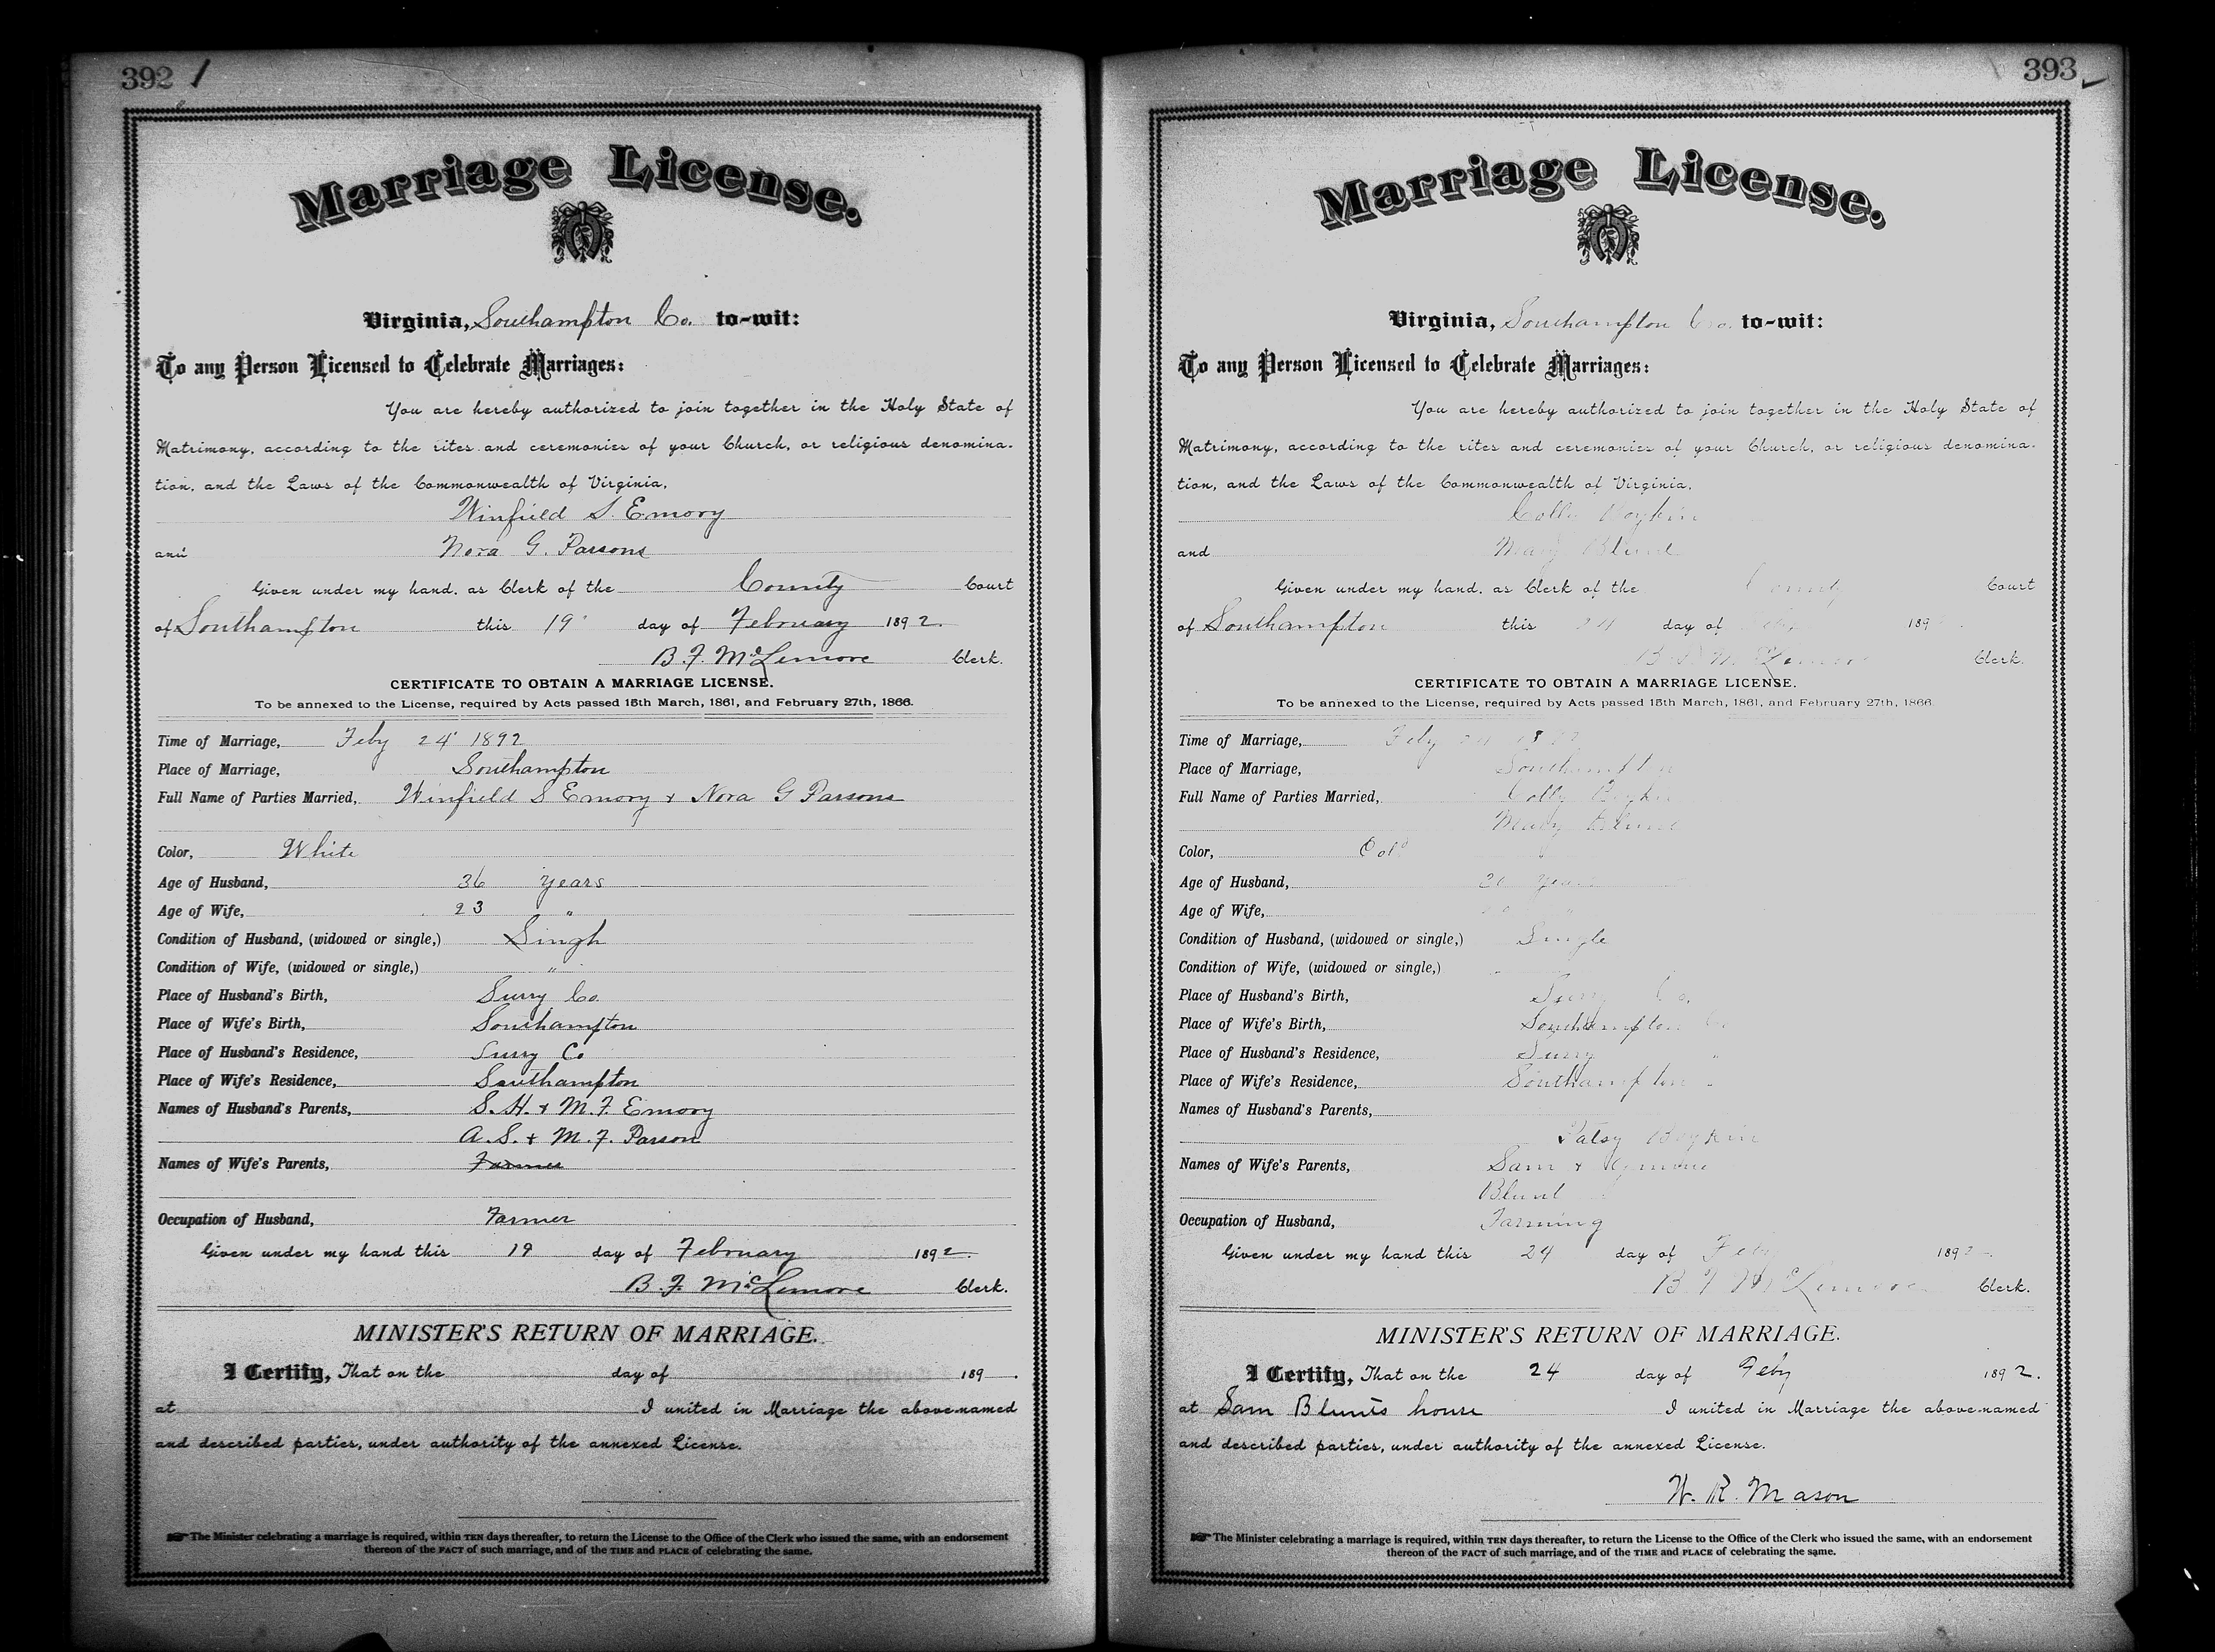 392 /
Marriage License.
Virginia, Southampton Co. to-wit:
To any Person Licensed to Celebrate Marriages:
You are hereby authorized to join together in the Holy State of
Matrimony, according to the rites and ceremonies of your Church, or religious denomina-
tion, and the Laws of the Commonwealth of Virginia,
Winfield S. Emory
and Nora G. Parsons
Given under my hand, as Clerk of the County Court
of Southampton this 19 day of February 1892.
B. F. McLemore Clerk.
CERTIFICATE TO OBTAIN A MARRIAGE LICENSE.
To be annexed to the License, required by Acts passed 15th March, 1861, and February 27th, 1866.
Time of Marriage, Feby 24 1892
Place of Marriage, Southampton
Full Name of Parties Married, Winfield S Emory + Nora G Parsons
Color, White
Age of Husband, 36 years
Age of Wife, 23 "
Condition of Husband, (widowed or single,) Single
Condition of Wife, (widowed or single,) "
Place of Husband's Birth, Surry Co.
Place of Wife's Birth, Southampton
Place of Husband's Residence, Surry Co
Place of Wife's Residence, Southampton
Names of Husband's Parents, S. H. + M. F. Emory
A. S. + M. F. Parson
Names of Wife's Parents, Farmer
Occupation of Husband, Farmer
Given under my hand this 19 day of February 1892.
B. F. McLemore Clerk.
MINISTER'S RETURN OF MARRIAGE.
I Certify, That on the day of 189 .
at I united in Marriage the above-named
and described parties, under authority of the annexed License.
The Minister celebrating a marriage is required, within TEN days thereafter, to return the License to the Office of the Clerk who issued the same, with an endorsement
thereon of the FACT of such marriage, and of the TIME and PLACE of celebrating the same.
393
Marriage License.
Virginia, Southampton Co. to-wit:
To any Person Licensed to Celebrate Marriages:
You are hereby authorized to join together in the Holy State of
Matrimony, according to the rites and ceremonies of your Church, or religious denomina-
tion, and the Laws of the Commonwealth of Virginia,
Colly Boykin
and Mary Blunt
Given under my hand, as Clerk of the County Court
of Southampton this 24 day of Feby 189
B. F. McLemore Clerk.
CERTIFICATE TO OBTAIN A MARRIAGE LICENSE.
To be annexed to the License, required by Acts passed 15th March, 1861, and February 27th, 1866.
Time of Marriage, Feby 24 1892
Place of Marriage, Southampton
Full Name of Parties Married, Colly Boykin
Mary Blunt
Color, Cold
Age of Husband, years
Age of Wife, "
Condition of Husband, (widowed or single,) Single
Condition of Wife, (widowed or single,)
Place of Husband's Birth, Surry Co.
Place of Wife's Birth, Southampton
Place of Husband's Residence, Surry "
Place of Wife's Residence, Southampton
Names of Husband's Parents,
Patsy Boykin
Names of Wife's Parents, Sam +
Blunt
Occupation of Husband, Farming
Given under my hand this 24 day of Feby 1892.
B F McLemore Clerk.
MINISTER'S RETURN OF MARRIAGE.
I Certify, That on the 24 day of Feby 1892.
at Sam Blunts house I united in Marriage the above-named
and described parties, under authority of the annexed License.
W. R. Mason
The Minister celebrating a marriage is required, within TEN days thereafter, to return the License to the Office of the Clerk who issued the same, with an endorsement
thereon of the FACT of such marriage, and of the TIME and PLACE of celebrating the same.